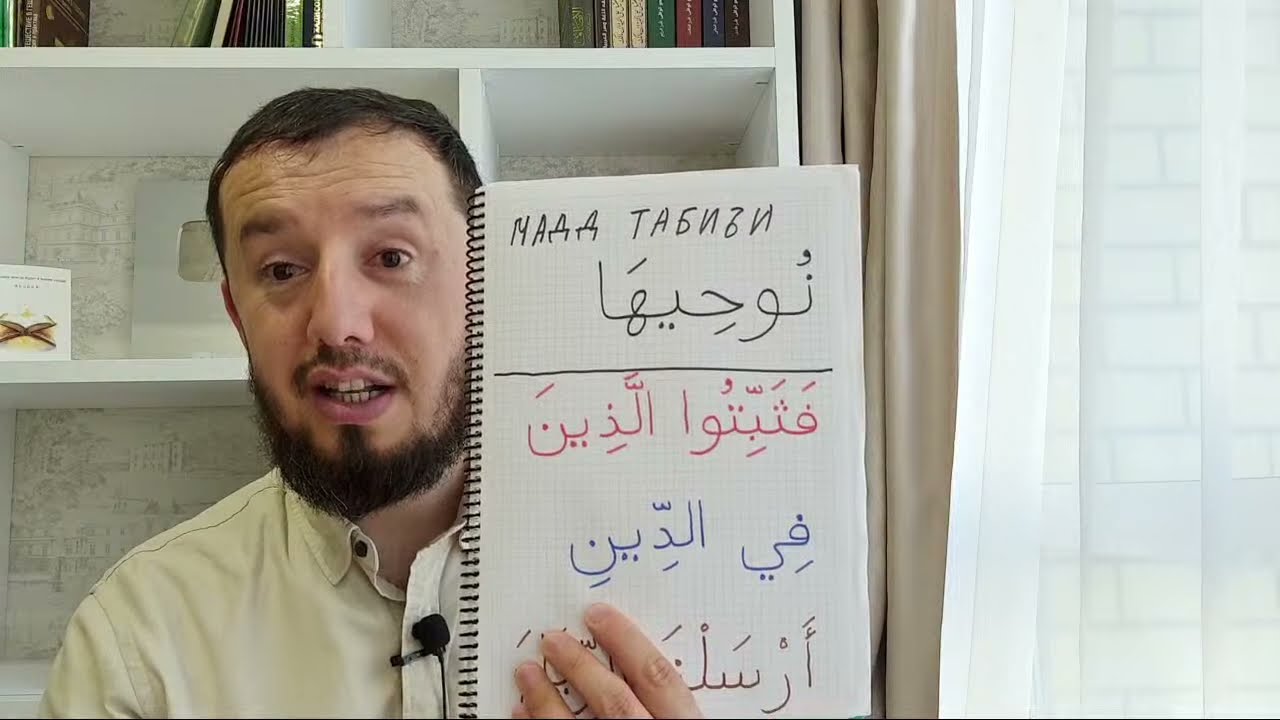 МАДД ТАБИЪИ
نُوحِيهَا
فَثَبِّتُوا الَّذِينَ
فِي الدِّينِ